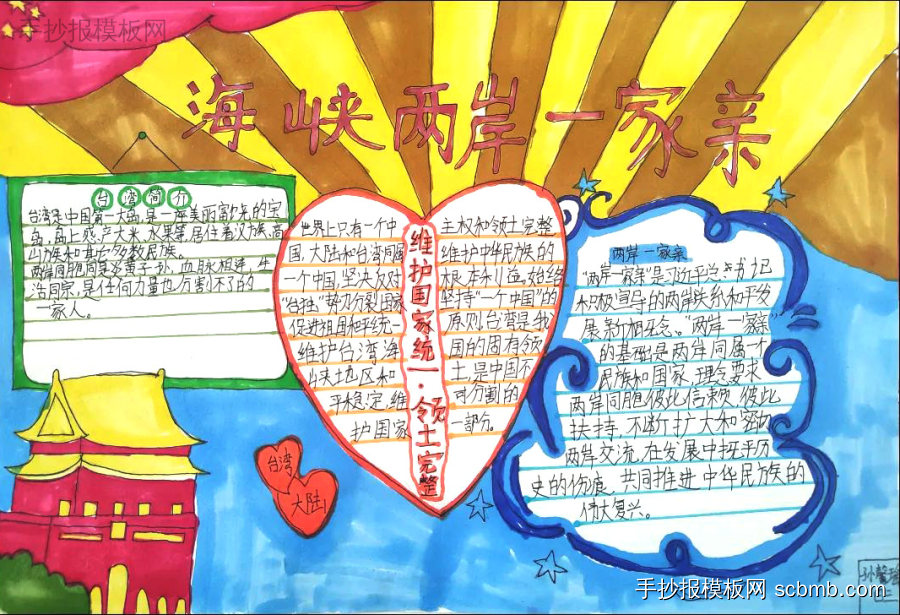 手抄报模板网
海峡两岸一家亲
台湾简介
台湾是中国第一大岛,是一座美丽富饶的宝
岛,岛上盛产大米、水果等,居住着汉族、高
山族和其他少数民族。
两岸同胞同是炎黄子孙,血脉相连,生
活同宗,是任何力量也分割不了的
一家人。
维护国家统一·领土完整
世界上只有一个中
国,大陆和台湾同属
一个中国,坚决反对
"台独"势力分裂国家
促进祖国和平统一
维护台湾海
峡地区和
平稳定,维
护国家
主权和领土完整
维护中华民族的
根本利益,始终
坚持"一个中国"的
原则,台湾是我
国的固有领
土,是中国不
可分割的
一部分。
台湾
大陆
两岸一家亲
"两岸一家亲"是习近平总书记
积极宣导的两岸关系和平发
展新相理念。"两岸一家亲"
的基础是两岸同属一个
民族和国家,理念要求
两岸同胞彼此信赖,彼此
扶持,不断扩大和密切
两岸交流,在发展中抚平历
史的伤痕,共同推进中华民族的
伟大复兴。
手抄报模板网 scbmb.com